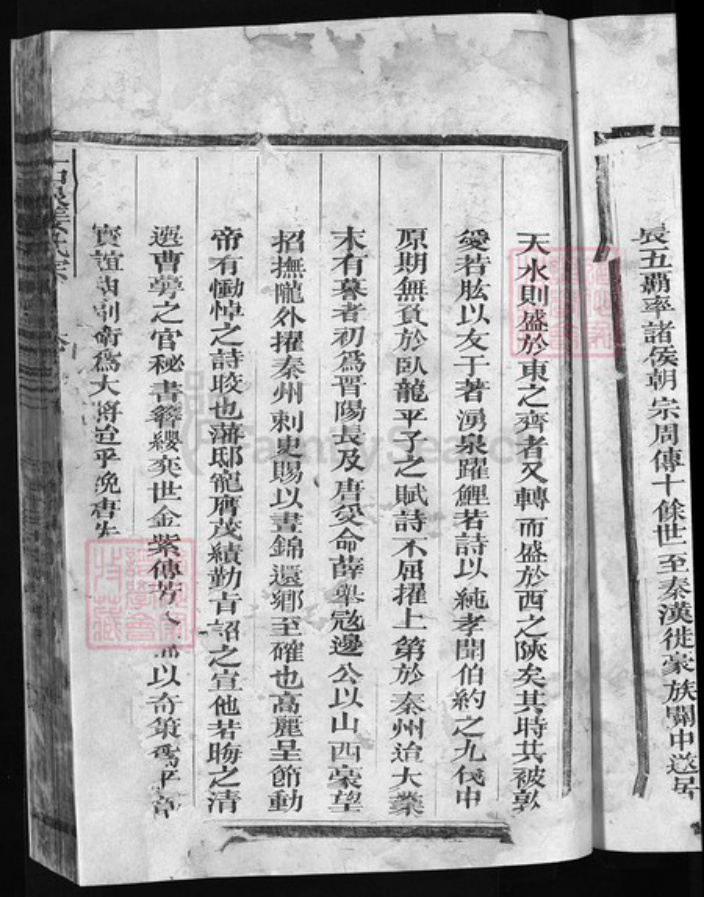 長五覇率諸侯朝宗周傳十餘世至秦漢徙豪族關中遂居
天水則盛於東之齊者又轉而盛於西之陝矣其時共被敦
愛若肱以友于著湧泉躍鯉若詩以純孝聞伯約之九伐中
原期無負於臥龍平子之賦詩不屈擢上第於秦州迨大業
末有謩者初爲晋陽長及唐受命薛舉寇邊公以山西豪望
招撫隴外擢秦州刺史賜以晝錦還鄉至確也高麗呈節動
帝有慟悼之詩晈也藩邸寵膺茂績勤肯詔之宣他若晦之清
選曹勞之官秘書簪纓奕世金紫傳芳
以奇策爲平章
爲大將
姜氏宗
FamilySearch